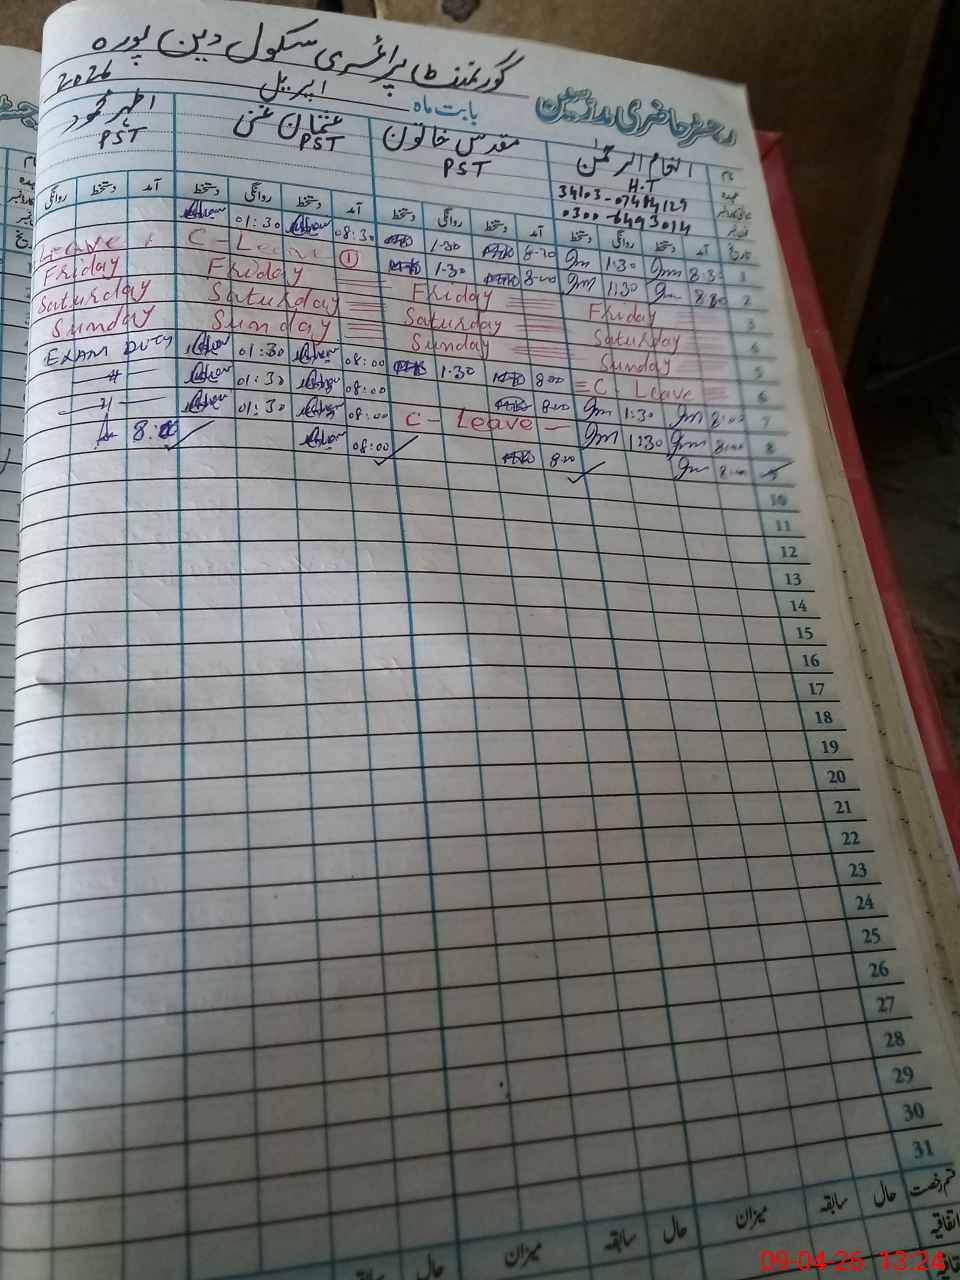 گورنمنٹ پرائمری سکول دین پورہ
رجسٹر حاضری مدرسین بابت ماہ اپریل 2026
نام انعام الرحمٰن مقدس خاتون عثمان غنی اظہر محمود
عہدہ H.T PST PST PST
34103-0748412-9
0300-6493014
تاریخ آمد دستخط روانگی دستخط آمد دستخط روانگی دستخط آمد دستخط روانگی دستخط آمد دستخط روانگی
1 8:30 1:30 8-30 1-30 08:30 01:30
2 8:30 1:30 8-00 1-30 C-Leave ① Leave
3 Friday Friday Friday Friday
4 Saturday Saturday Saturday Saturday
5 Sunday Sunday Sunday Sunday
6 C-Leave 8:00 1-30 08:00 01:30 EXAM DUTY
7 8:00 1:30 8:00 08:00 01:30
8 8:00 1:30 C-Leave 08:00 01:30
9 8:00 8:00 08:00 8:00
10
11
12
13
14
15
16
17
18
19
20
21
22
23
24
25
26
27
28
29
30
31
قسم رخصت حال سابقہ میزان حال سابقہ میزان حال
اتفاقیہ
09-04-26 13:24